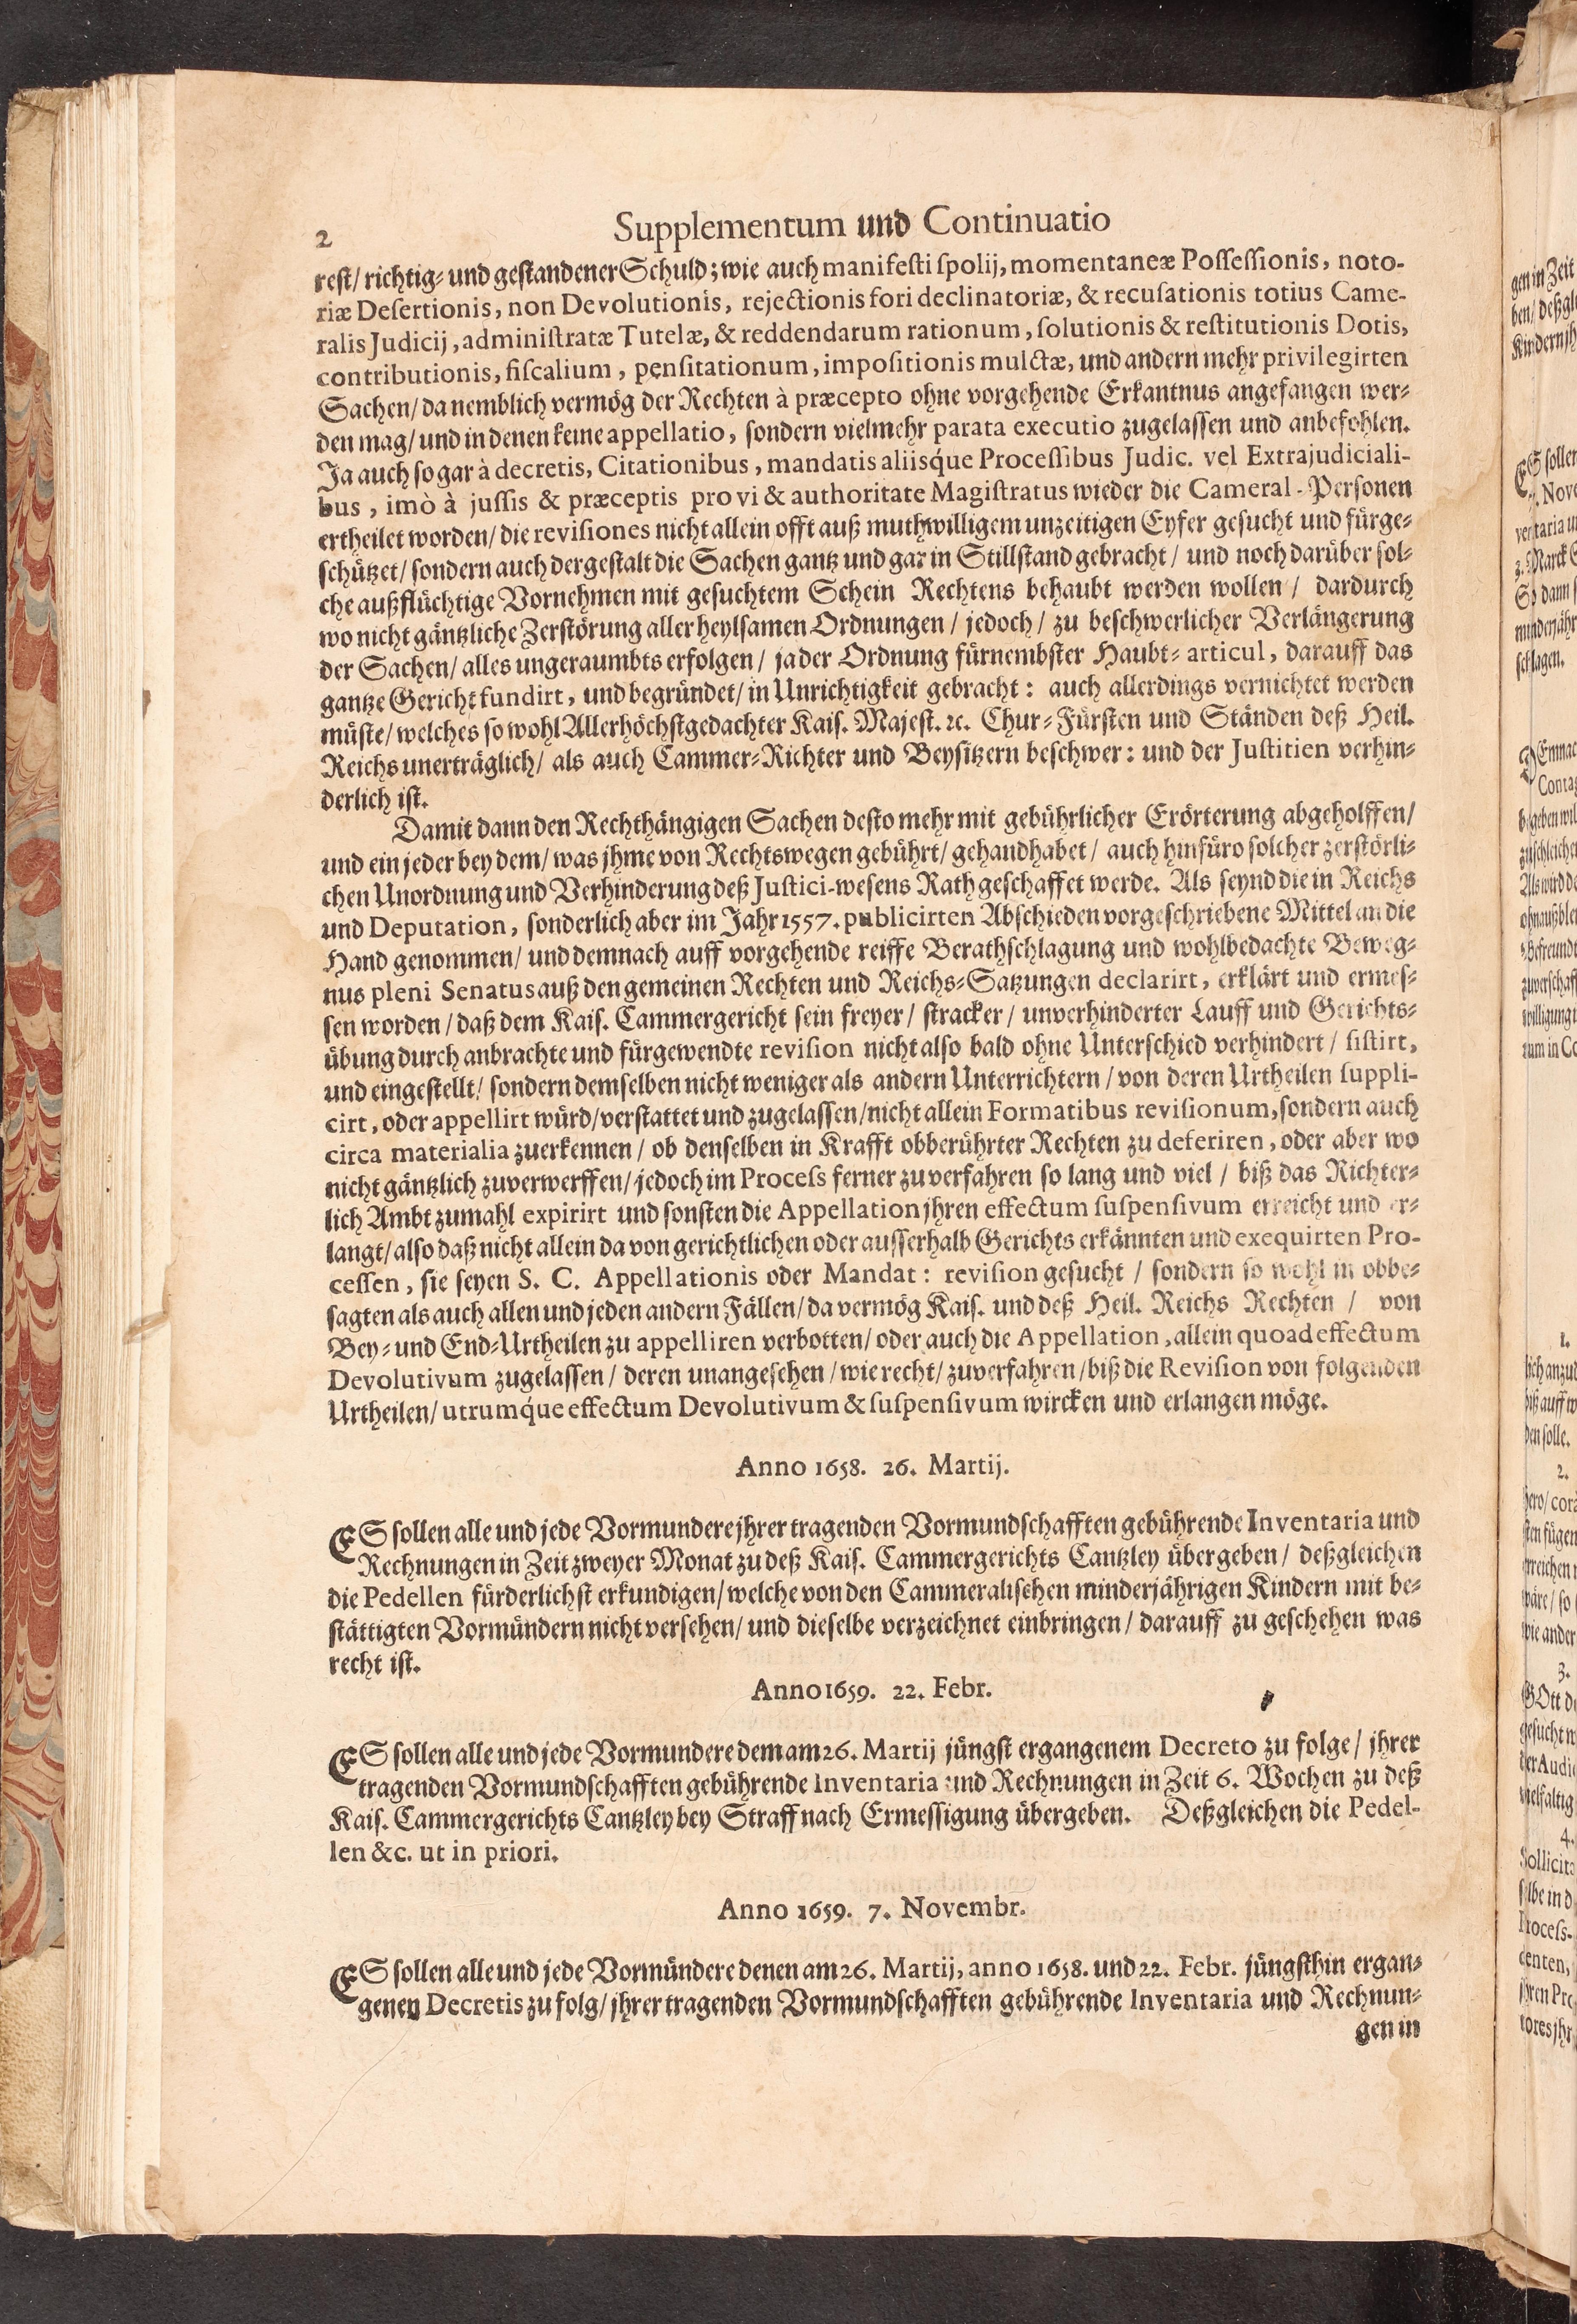 2
Supplementum und Continuatio
rest/ richtig- und gestandener Schuld; wie auch manifesti spolij, momentaneæ Possessionis, noto-
riæ Desertionis, non Devolutionis, rejectionis fori declinatoriæ, & recusationis totius Came-
ralis Judicij, administratæ Tutelæ, & reddendarum rationum, solutionis & restitutionis Dotis,
contributionis, fiscalium, pensitationum, impositionis mulctæ, und andern mehr privilegirten
Sachen/ da nemblich vermög der Rechten à præcepto ohne vorgehende Erkantnus angefangen wer-
den mag/ und in denen keine appellatio, sondern vielmehr parata executio zugelassen und anbefohlen.
Ja auch so gar à decretis, Citationibus, mandatis aliisq́ue Processibus Judic. vel Extrajudiciali-
bus, imò à jussis & præceptis pro vi & authoritate Magistratus wieder die Cameral-Personen
ertheilet worden/ die revisiones nicht allein offt auß muthwilligem unzeitigen Eyfer gesucht und fürge-
schützet/ sondern auch dergestalt die Sachen gantz und gar in Stillstand gebracht/ und noch darüber sol-
che außflüchtige Vornehmen mit gesuchtem Schein Rechtens behaubt werden wollen/ dardurch
wo nicht gäntzliche Zerstörung aller heylsamen Ordnungen/ jedoch/ zu beschwerlicher Verlängerung
der Sachen/ alles ungeraumbts erfolgen/ ja der Ordnung fürnembster Haubt-articul, darauff das
gantze Gericht fundirt, und begründet/ in Unrichtigkeit gebracht: auch allerdings vernichtet werden
müste/ welches so wohl Allerhöchstgedachter Kais. Majest. ꝛc. Chur-Fürsten und Ständen deß Heil.
Reichs unerträglich/ als auch Cammer-Richter und Beysitzern beschwer: und der Justitien verhin-
derlich ist.
Damit dann den Rechthängigen Sachen desto mehr mit gebührlicher Erörterung abgeholffen/
und ein jeder bey dem/ was jhme von Rechtswegen gebührt/ gehandhabet/ auch hinfüro solcher zerstörli-
chen Unordnung und Verhinderung deß Justici-wesens Rath geschaffet werde. Als seynd die in Reichs
und Deputation, sonderlich aber im Jahr 1557. publicirten Abschieden vorgeschriebene Mittel an die
Hand genommen/ und demnach auff vorgehende reiffe Berathschlagung und wohlbedachte Beweg-
nus pleni Senatus auß den gemeinen Rechten und Reichs-Satzungen declarirt, erklärt und ermes-
sen worden/ daß dem Kais. Cammergericht sein freyer/ stracker/ unverhinderter Lauff und Gerichts-
übung durch anbrachte und fürgewendte revision nicht also bald ohne Unterschied verhindert/ sistirt,
und eingestellt/ sondern demselben nicht weniger als andern Unterrichtern/ von deren Urtheilen suppli-
cirt, oder appellirt würd/ verstattet und zugelassen/ nicht allein Formatibus revisionum, sondern auch
circa materialia zuerkennen/ ob denselben in Krafft obberührter Rechten zu deferiren, oder aber wo
nicht gäntzlich zuverwerffen/ jedoch im Process ferner zu verfahren so lang und viel/ biß das Richter-
lich Ambt zumahl expirirt und sonsten die Appellation jhren effectum suspensivum erreicht und er-
langt/ also daß nicht allein da von gerichtlichen oder ausserhalb Gerichts erkännten und exequirten Pro-
cessen, sie seyen S. C. Appellationis oder Mandat: revision gesucht/ sondern so wohl in obbe-
sagten als auch allen und jeden andern Fällen/ da vermög Kais. und deß Heil. Reichs Rechten/ von
Bey- und End-Urtheilen zu appelliren verbotten/ oder auch die Appellation, allein quoad effectum
Devolutivum zugelassen/ deren unangesehen/ wie recht/ zuverfahren/ biß die Revision von folgenden
Urtheilen/ utrumq́ue effectum Devolutivum & suspensivum wircken und erlangen möge.
Anno 1658. 26. Martij.
ES sollen alle und jede Vormundere jhrer tragenden Vormundschafften gebührende Inventaria und
Rechnungen in Zeit zweyer Monat zu deß Kais. Cammergerichts Cantzley übergeben/ deßgleichen
die Pedellen fürderlichst erkundigen/ welche von den Cammeralischen minderjährigen Kindern mit be-
stättigten Vormündern nicht versehen/ und dieselbe verzeichnet einbringen/ darauff zu geschehen was
recht ist.
Anno 1659. 22. Febr.
ES sollen alle und jede Vormundere dem am 26. Martij jüngst ergangenem Decreto zu folge/ jhrer
tragenden Vormundschafften gebührende Inventaria und Rechnungen in Zeit 6. Wochen zu deß
Kais. Cammergerichts Cantzley bey Straff nach Ermessigung übergeben. Deßgleichen die Pedel-
len &c. ut in priori.
Anno 1659. 7. Novembr.
ES sollen alle und jede Vormündere denen am 26. Martij, anno 1658. und 22. Febr. jüngsthin ergan-
genen Decretis zu folg/ jhrer tragenden Vormundschafften gebührende Inventaria und Rechnun-
gen in